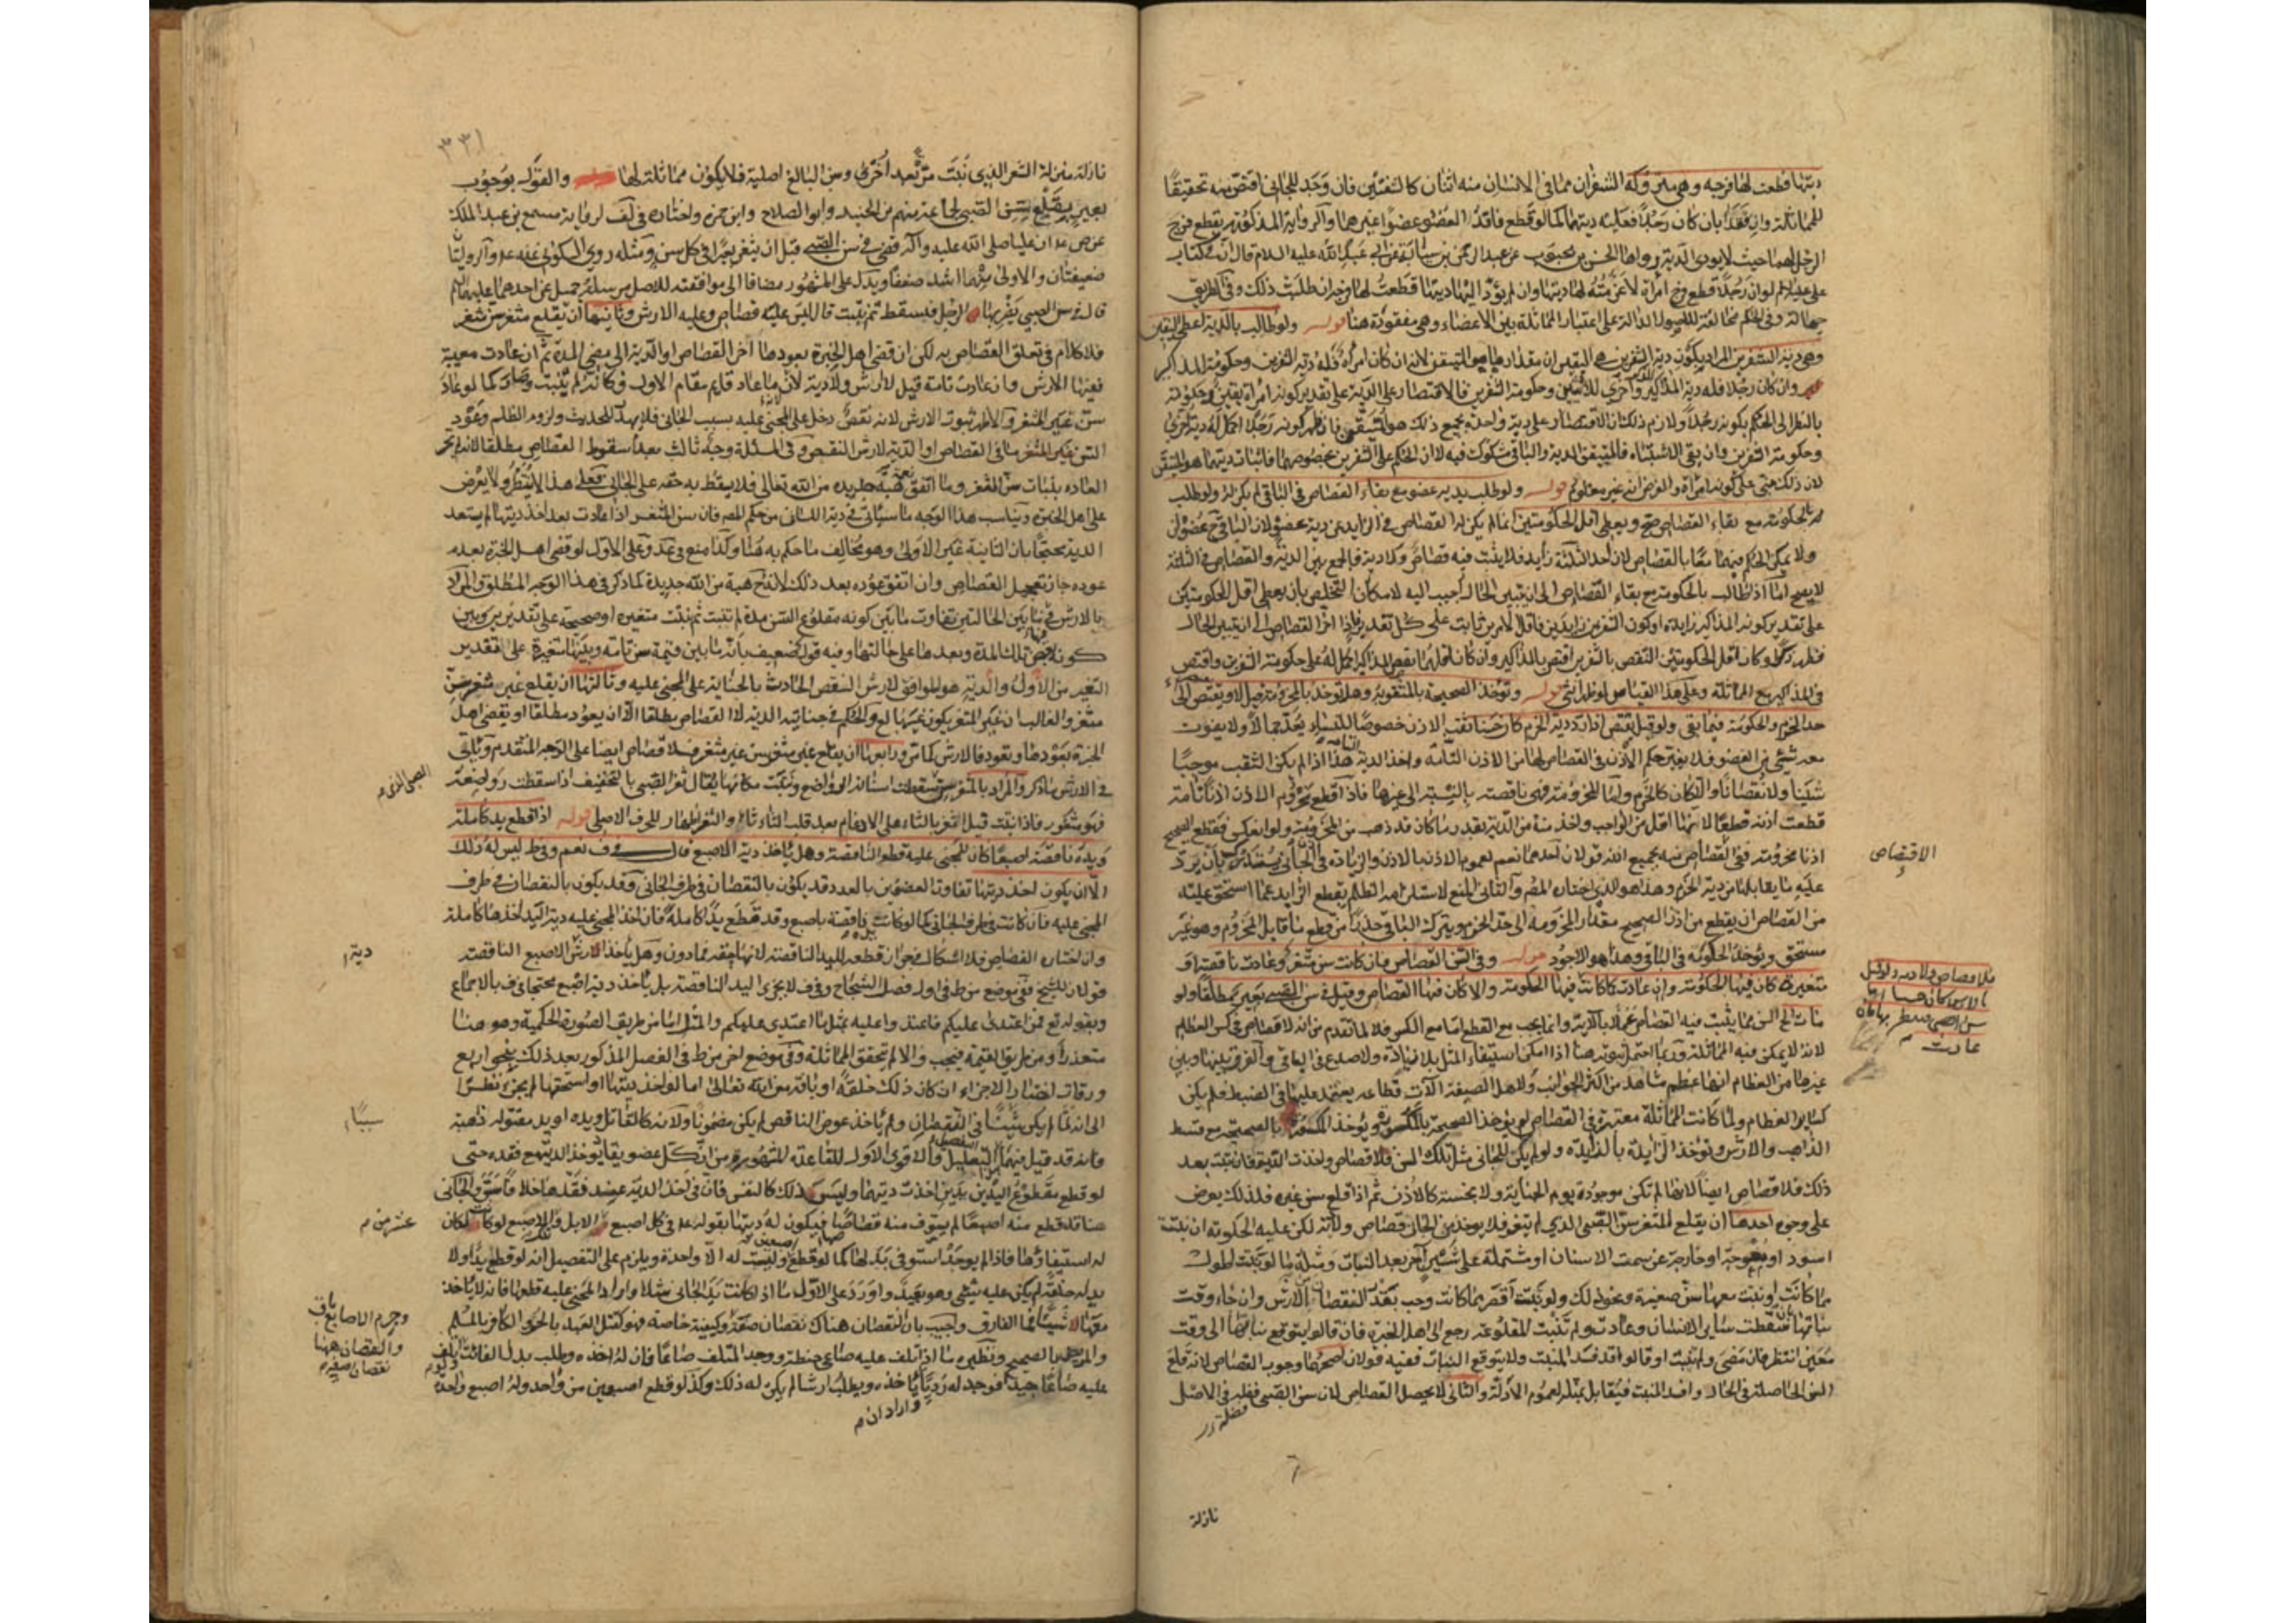 ديتها قطعت لها فرجه وهي متروكة الشفران مما في الانسان منه اثنان كالشفتين فان وجد للجاني اقتص منه تحقيقا
للمماثلة وان فقدا بان كان رجلا فعليه ديتهما كما لو قطع فاقد العضو عضوا غيرهما والرواية المذكورة بقطع فرج
الرجل لهما حيث لا يودي الدية رواها الحسن بن محبوب عن عبد الرحمن بن سيابة عن ابي عبد الله عليه السلام قال ان في كتاب
علي عليه السلام لو ان رجلا قطع فرج امرأة لاغرمته لها ديتها وان لم يؤد اليها ديتها قطعت لها فرجه ان طلبت ذلك وفي الطريق
جهالة وفي الحكم مخالفة للاصول الدالة على اعتبار المماثلة بين الاعضاء وهي مفقودة هنا قوله ولو طالب بالدية اعطي اليقين
وهي دية الشفرين المراد بكون دية الشفرين هي اليقين ان مقدارها هو المتيقن لانه ان كان امرأة فله دية الشفرين وحكومة المذاكير
وان كان رجلا فله دية المذاكير واخرى للانثيين وحكومة الشفرين فالاقتصار على الدية على تقدير كونه امرأة يقين
بالنظر الى الحكم بكونه رجلا ولازم ذلك ان الاقتصار على دية واحدة بجميع ذلك هو المتيقن فان ظهر كونه رجلا اكمل له دية اخرى
وحكومة الشفرين وان بقي الاشتباه فالمتيقن الدية والباقي مشكوك فيه لا ان الحكم على الشفرين بخصوصهما فاثبات ديتهما هو المتيقن
لان ذلك مبني على كونه امرأة والفرض انه غير معلوم قوله ولو طلب بدية عضو مع بقاء القصاص في الباقي لم يكن له ولو طلب
الحكومة مع بقاء القصاص صح ويعطى اقل الحكومتين انما لم يكن له القصاص في الزايد عن دية عضو لان الباقي ح عضوان
ولا يمكن الحكم فيهما معا بالقصاص لان احد الثلثة زايد فلا يثبت فيه قصاص ولا دية فالجمع بين الدية والقصاص في الثلثة
لا يصح اما اذا طالب بالحكومة مع بقاء القصاص الى ان يتبين الحال اجيب اليه لامكان التخلص بان يعطى اقل الحكومتين
على تقدير كونه المذاكير زايدة او كون الشفرين زايدين فاقل الامرين ثابت على كل تقدير فاذا اخر القصاص الى ان يتبين الحال
وكان اقل الحكومتين النقص بالشفرين اقتص بالمذاكير وان كان اقلهما بقص المذاكير اكمل له على حكومة الشفرين واقتص
في المذاكير مع المماثلة وعلى هذا القياس لو ظهر انثى قوله وتؤخذ الصحيحة بالمثقوبة وهل تؤخذ بالمخرومة قيل لا ويقتص الى
حد الخرم والحكومة فيما بقي ولو قيل يقتص اذا رد دية الخرم كان حسنا ثقب الاذن خصوصا للنساء يعد جمالا ولا يفوت
معه شيئ من العضو فلا يغير حكم الاذن في القصاص لها من الاذن التامة واخذ الدية هذا اذا لم يكن الثقب موجبا
شينا ولا نقصانا والا كان كالخرم واما المخرومة فهي ناقصة بالنسبة الى غيرها فاذا قطع مخروم الاذن اذنا تامة
قطعت اذنه قطعا لانها اقل من الواجب واخذ منه من الدية بقدر ما كان قد ذهب من المخرومة ولو انعكس فقطع الصحيح
اذنا مخرومة ففي القصاص منه بجميع اذنه قولان احدهما نعم لعموم الاذن بالاذن والزيادة في الجاني يستدرك بان يرد
عليه ما يقابلها من دية الخرم وهذا هو الذي اختاره المصر والثاني المنع لاستلزامه الظلم بقطع الزايد عما استحق عليه
من القصاص ان يقطع من اذن الصحيح مقدار المخرومة الى حد الخرم ويترك الباقي حذرا من قطع ما قابل المخروم وهو غير
مستحق وتؤخذ الحكومة في الباقي وهذا هو الاجود قوله وفي السن القصاص فان كانت سن مثغر وعادت ناقصة او
متغيرة كان فيها الحكومة وان عادت كما كانت فيها الحكومة والا كان فيها القصاص وقيل في سن الصبي بعير مطلقا ولو
مات الى السن مما يثبت فيه القصاص عملا بالاية وانما يجب مع القطع اما مع الكسر فلا لما تقدم من انه لا قصاص في كسر العظام
لانه لا يمكن فيه المماثلة وربما احتمل ثبوته هنا اذا امكن استيفاء المثل بلا زيادة ولا صدع في الباقي والفرق بينها وبين
غيرها من العظام انها عظم مشاهد من اكثر الجوانب ولاهل الصنعة آلات قطاعة يعتمد عليها في الضبط فلم يكن
كساير العظام ولما كانت المماثلة معتبرة في القصاص لم يؤخذ الصحيحة بالمكسورة ويؤخذ المكسورة بالصحيحة مع قسط
الذاهب والارش وتؤخذ الزايدة بالزايدة ولو لم يكن للجاني مثل تلك السن فلا قصاص واخذت الدية فان نبتت بعد
ذلك فلا قصاص ايضا لانها لم تكن موجودة يوم الجناية ولا بخسته كالاذن ثم اذا قلع سن غيره فلذلك يعرض
على وجوه احدها ان يقلع المثغر سن الصبي الذي لم يثغر فلا يؤخذ من الجاني قصاص ولا دية لكن عليه الحكومة ان نبتت
اسود او معوجة او خارجة عن سمت الاسنان او مشتملة على شين آخر بعد النبات ومثله ما لو نبتت اطول
مما كانت او نبتت معها سن صغيرة ونحو ذلك ولو نبتت اقصر مما كانت وجب بقدر النقصان الارش وان جاء وقت
نباتها بان سقطت ساير الاسنان وعادت ولم تنبت المقلوعة رجع الى اهل الخبرة فان قالوا يتوقع نباتها الى وقت
معين انتظر فان مضى ولم تنبت او قالوا قد فسد المنبت ولا يتوقع النبات ففيه قولان اصحهما وجوب القصاص لانه قلع
السن الحاصلة في الحال وافسد المنبت فيقابل بمثله لعموم الادلة والثاني لا يحصل القصاص لان سن الصبي فضلة في الاصل
نازلة
الاقتصاص
عادت
٣٣١
نازلة منزلة الشعر الذي نبت مرة بعد اخرى وسن البالغ اصلية فلا يكون مماثلة لها والقول بوجوب
بعير بقلع سن الصبي لجماعة منهم ابن الجنيد وابو الصلاح وابن حمزة واختاره في لف لرواية مسمع بن عبد الملك
عن ص ع ان عليا صلى الله عليه وآله قضى في سن الصبي قبل ان يثغر بعيرا في كل سن ومثله روى السكوني عنه ع والروايتان
ضعيفتان والاولى منهما اشد ضعفا ويدل على المشهور مضافا الى موافقته للاصل مرسلة جميل عن احدهما عليهما السلام
قال في سن الصبي يضربها الرجل فيسقط ثم تنبت قال ليس عليه قصاص وعليه الارش وثانيها ان يقلع مثغر سن مثغر
فلا كلام في تعلق القصاص به لكن ان قضى اهل الخبرة بعودها اخر القصاص او الدية الى مضي المدة ثم ان عادت معيبة
ففيها الارش وان عادت تامة قيل لا ارش ولا دية لان ما عاد قايم مقام الاول فكانه لم يثبت وصار كما لو عاد
سن غير المثغر والاظهر ثبوت الارش لانه نقص دخل على المجني عليه بسبب الجاني فلا يهدر للحديث ولزوم الظلم وعود
السن في غير المثغر مناف القصاص او الدية لا ارش النقص وفي المسئلة وجه ثالث بعدم سقوط القصاص مطلقا لانه لم تجر
العادة بنبات سن المثغر وما اتفق هبة جديدة من الله تعالى فلا يسقط به حقه على الجاني فعلى هذا لا ينتظر ولا يعرض
على اهل الخبرة ويناسب هذا الوجه ما سيأتي في دية اللسان من حكم المصر فان سن المثغر اذا عادت بعد اخذ ديتها لم يستعد
الدية محتجا بان الثانية غير الاولى وهو يخالف ما حكم به هنا وكذا منع في عد وعلى الاول لو قضى اهل الخبرة بعدم
عوده جاز تعجيل القصاص وان اتفق عوده بعد ذلك لانه ح هبة من الله جديدة كما ذكر في هذا الوجه المطلق والمراد
بالارش في ما بين الحالتين تفاوت ما بين كونه مقلوع السن مدة لم تنبت ثم نبتت متغيرة او صحيحة على تقديرين وبين
كونه بسن تلك المدة وبعدها على حالتها وفيه قول ضعيف بانه ما بين قيمة سن تامة وبينها متغيرة على تقدير
التغير من الاول والدية هو الموافق لارش النقص الحادث بالجناية على المجني عليه وثالثها ان يقلع غير مثغر سن
مثغر والغالب ان غير المثغر يكون غير بالغ والحكم في جنايته الدية لا القصاص مطلقا الا ان يعود مطلقا او يقضي اهل
الخبرة بعودها ويعود فالارش كما مر ورابعها ان يقلع غير مثغر سن غير مثغر فلا قصاص ايضا على الوجه المتقدم ويأتي
في الارش ما ذكر والمراد بالمثغر من سقطت اسنانه الرواضع ونبتت مكانها يقال ثغر الصبي بالتخفيف اذا سقطت رواضعه
فهو مثغور فاذا نبتت قيل اثغر بالتاء على الادغام بعد قلب الثاء تاء واثغر اظهار للحرف الاصلي قوله اذا قطع يدا كاملة
ويده ناقصة اصبعا كان للمجني عليه قطع الناقصة وهل يأخذ دية الاصبع قال في ف نعم وفي ط ليس له ذلك
الا ان يكون اخذ ديتها تفاوت العضوين بالعدد قد يكون بالنقصان في طرف الجاني وقد يكون بالنقصان في طرف
المجني عليه فان كانت في طرف الجاني كما لو كانت يده ناقصة باصبع وقد قطع يدا كاملة فان اخذ المجني عليه دية اليد اخذها كاملة
وان اختار القصاص فلا اشكال في جواز قطعه لليد الناقصة لانها حقه فما دون وهل يأخذ ارش الاصبع الناقصة
قولان للشيخ ففي موضع من ط في اول فصل الشجاج وفي ف لا يجزي اليد الناقصة بل يأخذ دية اصبع محتجا في ف بالاجماع
وبقوله تع فمن اعتدى عليكم فاعتدوا عليه بمثل ما اعتدى عليكم والمثل اما من طريق الصورة الحكمية وهو هنا
متعذر او من طريق القيمة فيجب والا لم تتحقق المماثلة وفي موضع اخر من ط في الفصل المذكور بعد ذلك بنحو اربع
ورقات اختار الاجزاء ان كان ذلك خلقة او بافة من الله تعالى اما لو اخذ ديتها او استحقها لم يجزه نظرا
الى انه لما لم يكن سببا في النقصان ولم يأخذ عوض الناقص لم يكن مضمونا ولانه كالقاتل ويده او يد مقتوله ذهبة
فانه قد قيل فيهما التفصيل والاقوى الاول للقاعدة المشهورة من ان كل عضو يقاد يؤخذ الدية مع فقده حتى
لو قطع مقطوع اليدين يدين اخذت ديتهما وليس ذلك كالنفس فان في اخذ الدية عند فقدها خلافا سبق والجاني
هنا قد قطع منه اصبعا لم يستوف منه قصاصا فيكون له ديتها بقوله ع في كل اصبع عشر من الابل والاصبع لو كانت لكان
له استيفاؤها فاذا لم يوجد استوفى بدلها كما لو قطع اصبعين وليست له الا واحدة ويلزم على التفصيل انه لو قطع يدا ولا
يد له خلقة لم يكن عليه شيئ وهو بعيد واورد على الاول ما اذا كانت يد الجاني شلاء واراد المجني عليه قطعها فانه لا يأخذ
معها شيئا فما الفارق واجيب بان النقصان هناك نقصان صفة وكيفية خاصة فهو كقتل العبد بالحر والكافر بالمسلم
والمريض بالصحيح ونظيره ما اذا تلف عليه صاعي حنطة ووجد المتلف صاعا فان له اخذه وطلب بدل الفائت ولو اتلف
عليه صاعا جيدا فوجد له رديا يأخذه ويطلب ارشا لم يكن له ذلك وكذا لو قطع اصبعين من واحد وله اصبع واحدة
واراد ان م
دية
سببا
عشر من م
وجرم الاصابع باق
والنقصان ههنا
نقصان صفة م